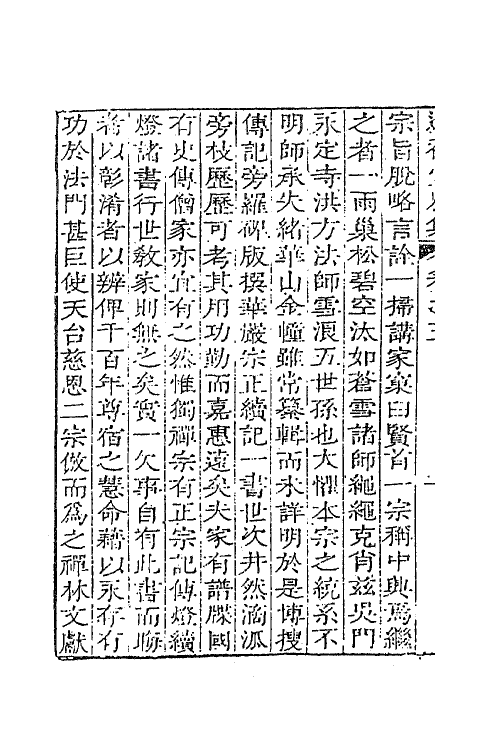 宗旨脫略言詮一掃講家窠臼賢首一宗稱中興焉繼
之者一雨巢松碧空汰如蒼雪諸師繩繩克肖茲吳門
永定寺洪方法師雪浪五世孫也大懼本宗之統系不
明師承失緒華山金幢雖常纂輯而未詳明於是博搜
傳記旁羅碑版撰華嚴宗正續記一書世次井然涵派
旁枝歷歷可考其用功勤而嘉惠遠矣夫家有譜牒國
有史傳僧家亦宜有之然惟獨禪宗有正宗記傳燈續
燈諸書行世教家則無之矣實一欠事自有此書而晦
者以彰淆者以辨俾千百年尊宿之慧命藉以永存有
功於法門甚巨使天台慈恩二宗倣而爲之禪林文獻